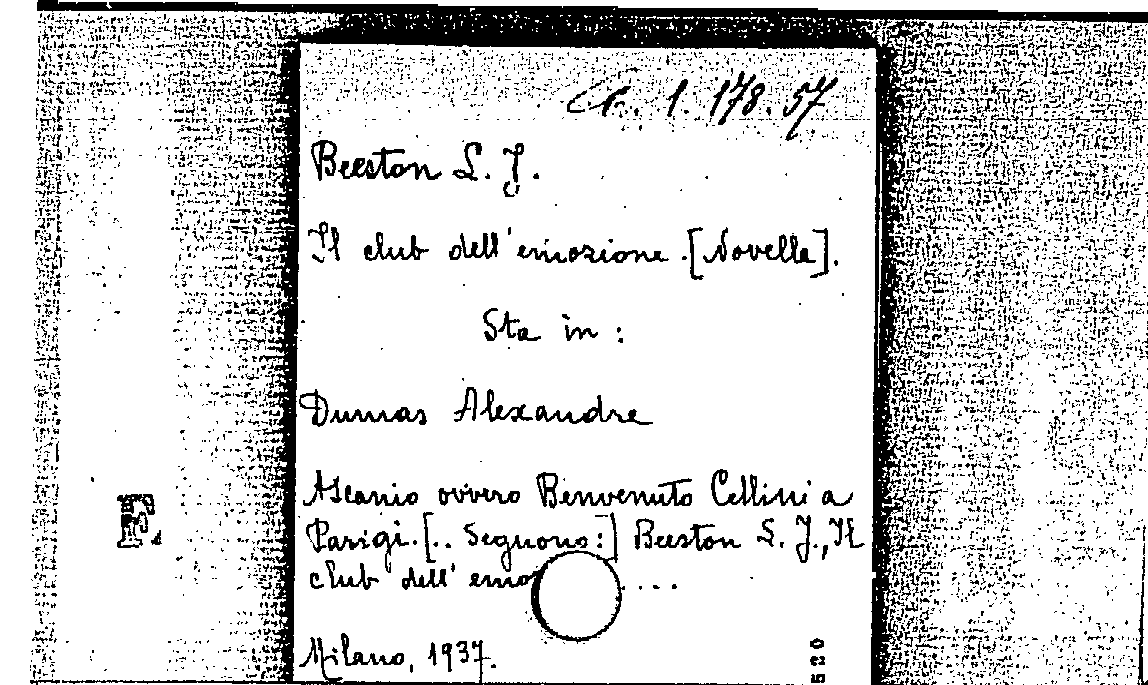 Cr. 1. 178. 57
Beeston L. J.
Il club dell'emozione. [Novelle].
Sta in:
Dumas Alexandre
Ascanio ovvero Benvenuto Cellini a
Parigi. [.. Seguono:] Beeston L. J., Il
club dell'emo ...
Milano, 1937.
F.
520